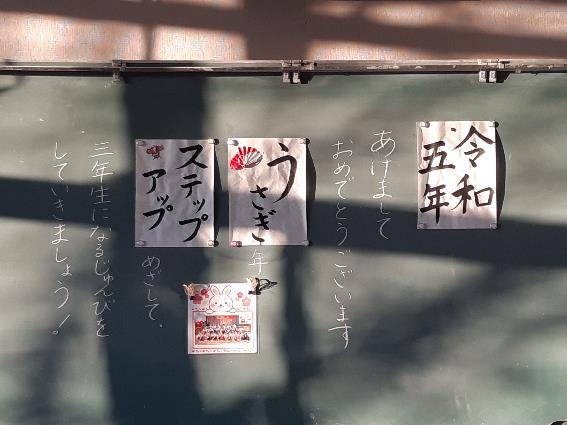 令和
五年
あけまして
おめでとうございます
うさぎ年
ステップ
アップ
めざして、
三年生になるじゅんびを
していきましょう!